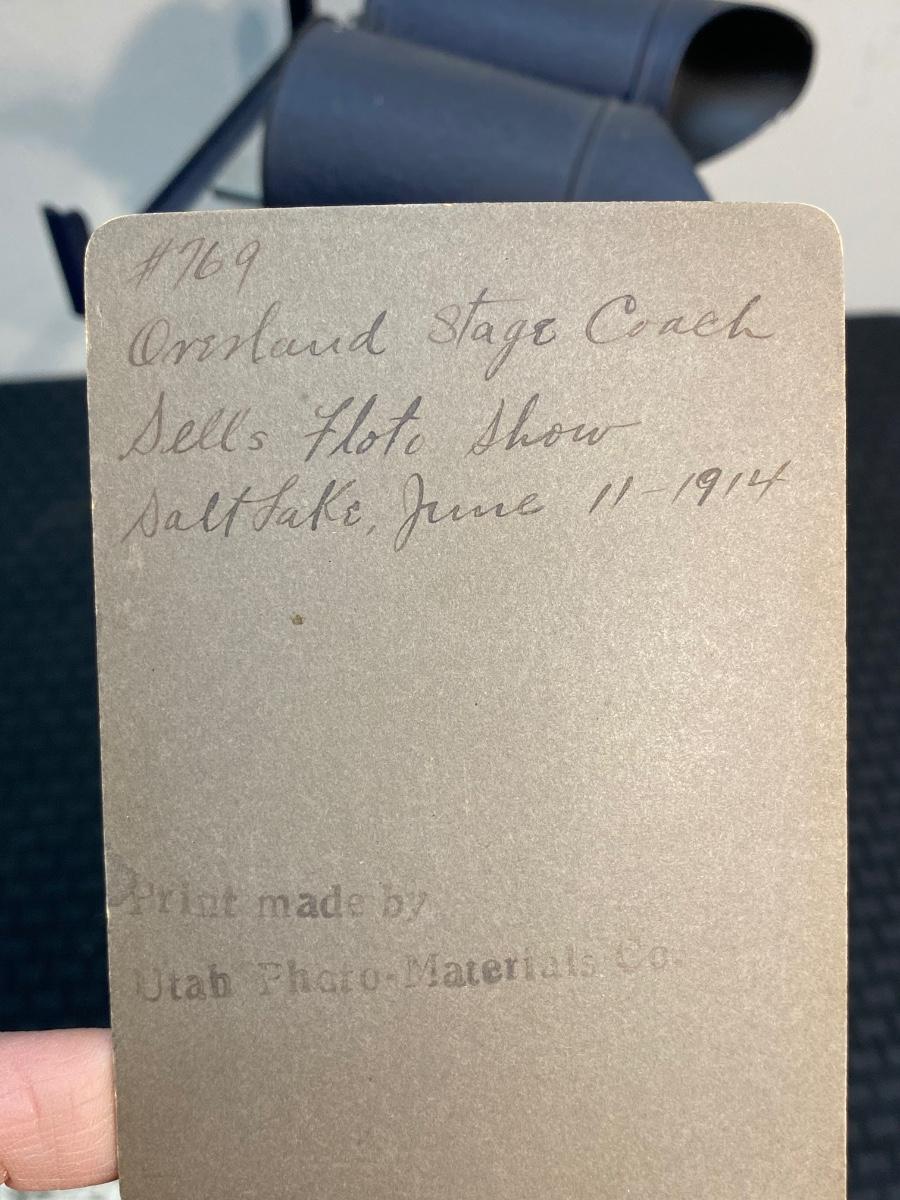 #769
Overland Stage Coach
Sells Floto Show
Salt Lake, June 11-1914
Print made by
Utah Photo-Materials Co.